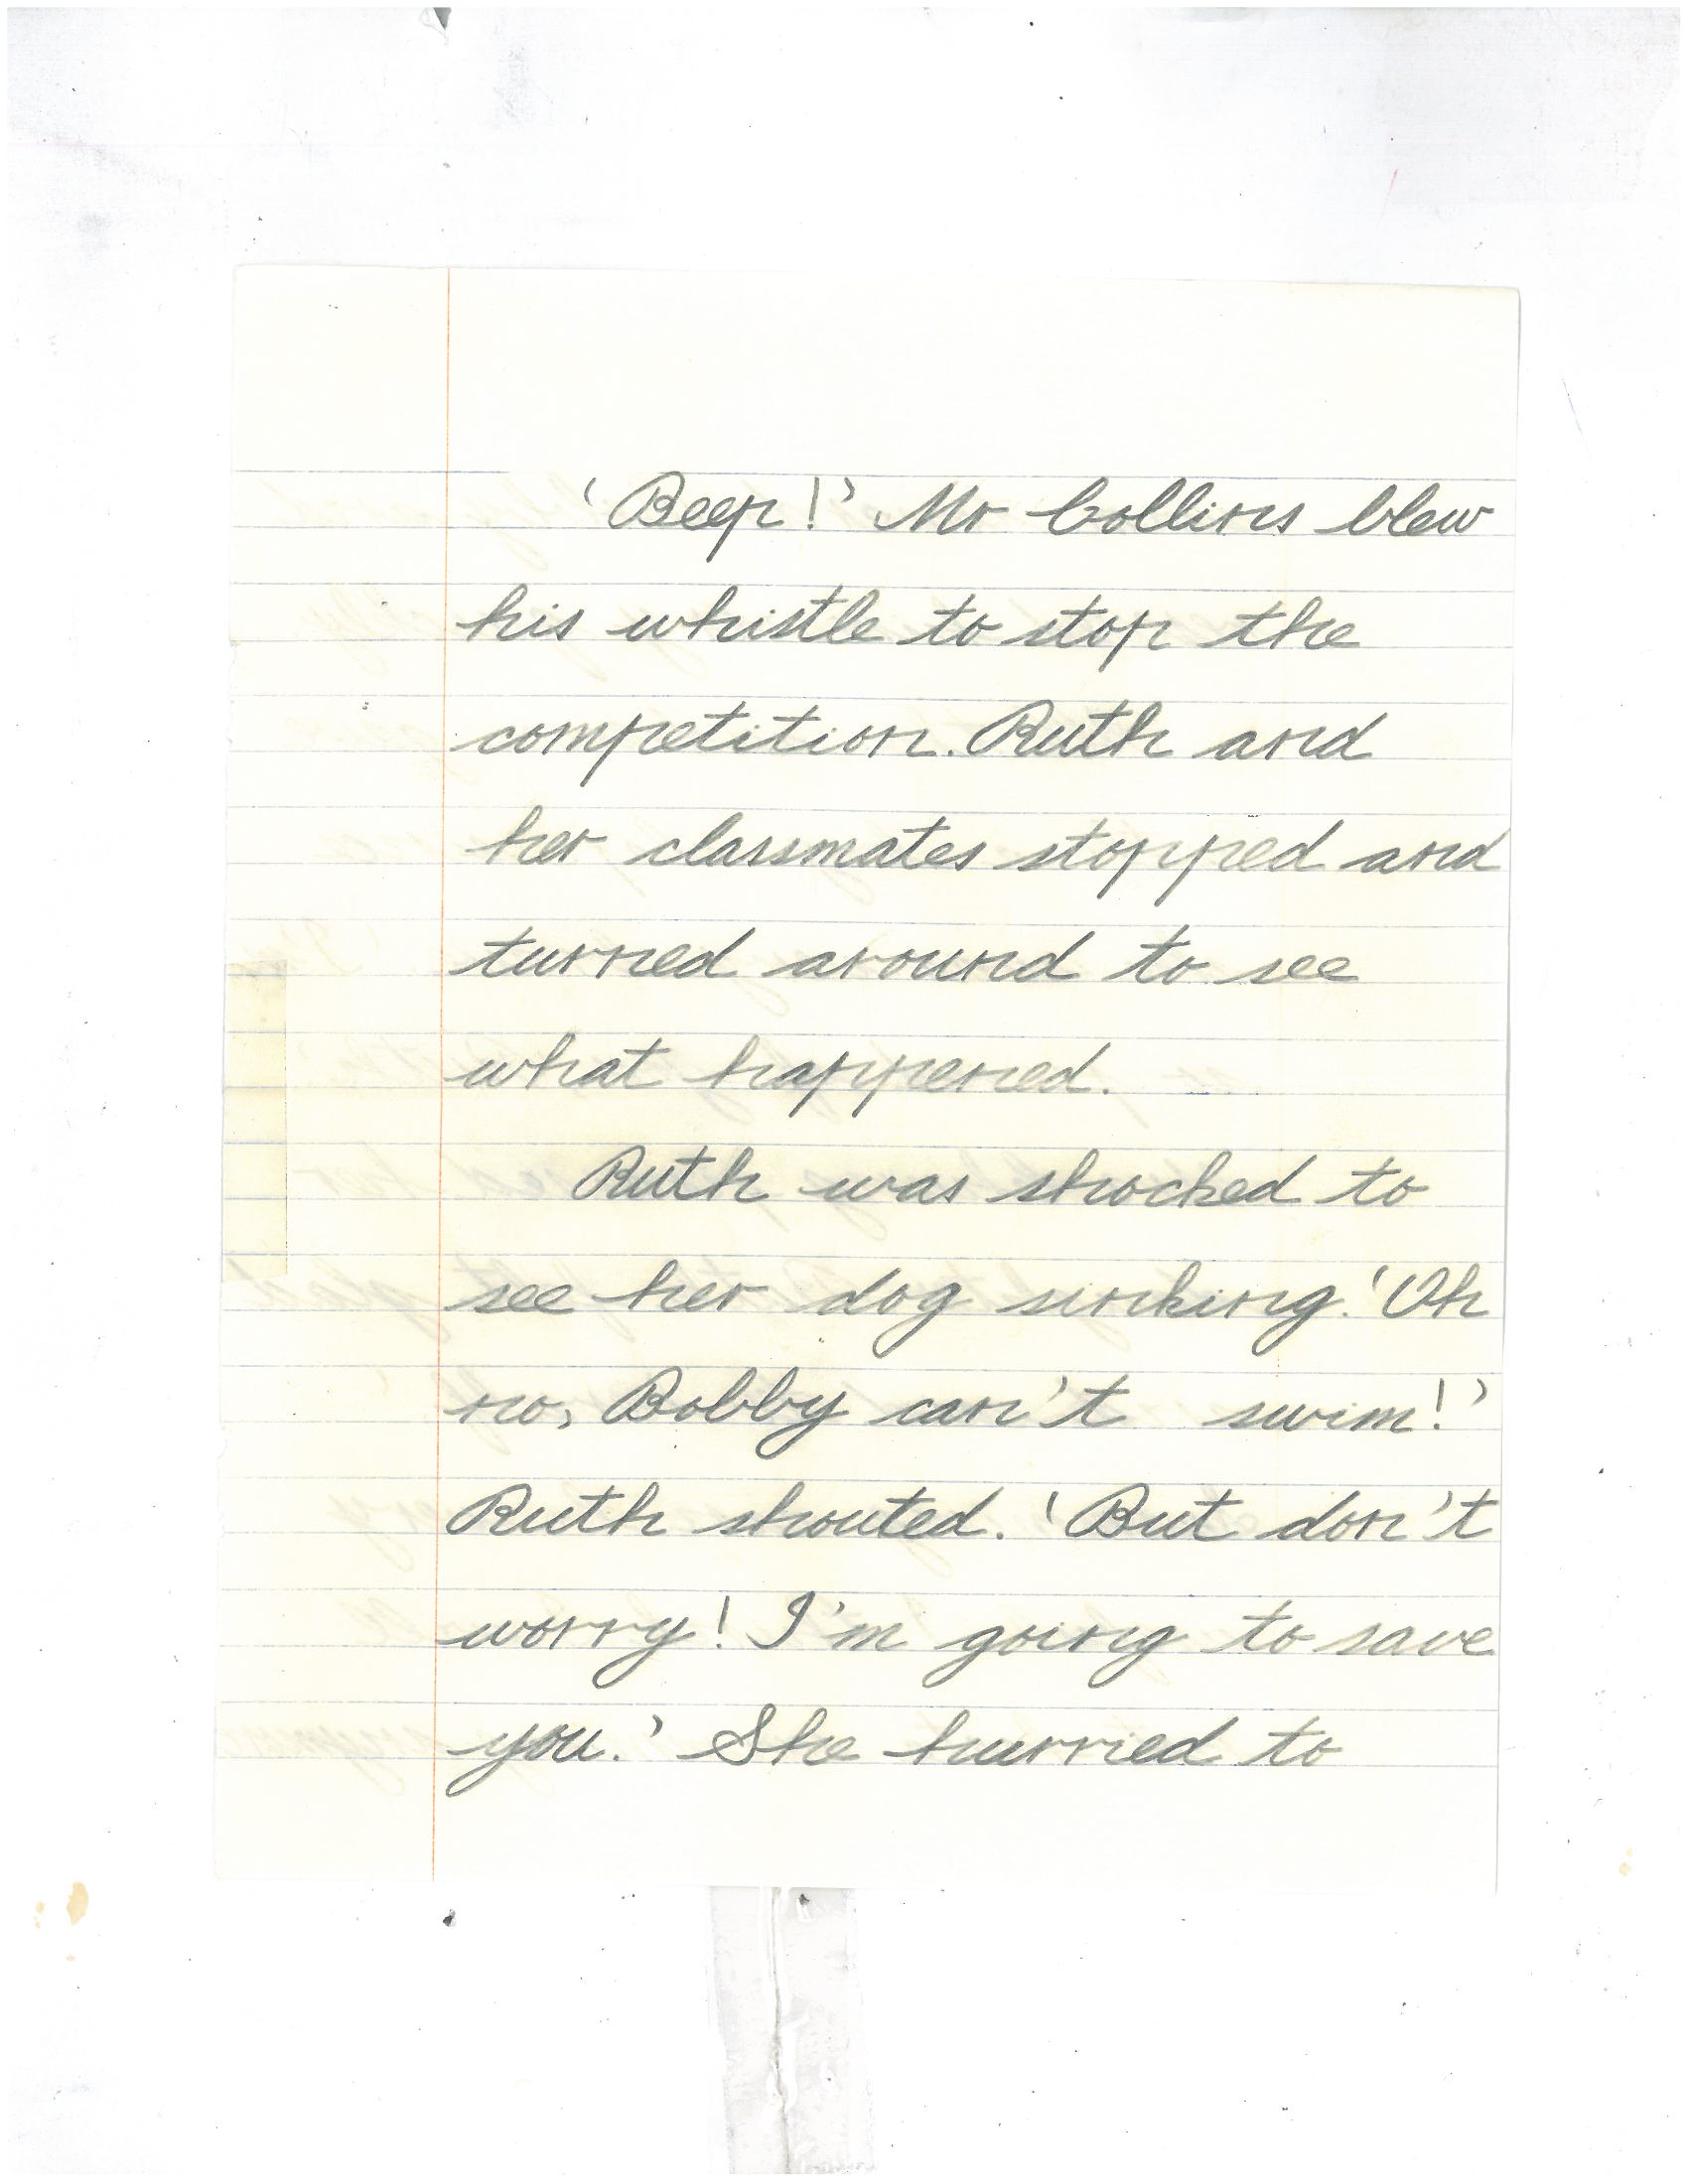 'Beep!' Mr Collins blew
his whistle to stop the
competition. Ruth and
her classmates stopped and
turned around to see
what happened.
Ruth was shocked to
see her dog sinking. 'Oh
no, Bobby can't swim!'
Ruth shouted. 'But don't
worry! I'm going to save
you.' She hurried to